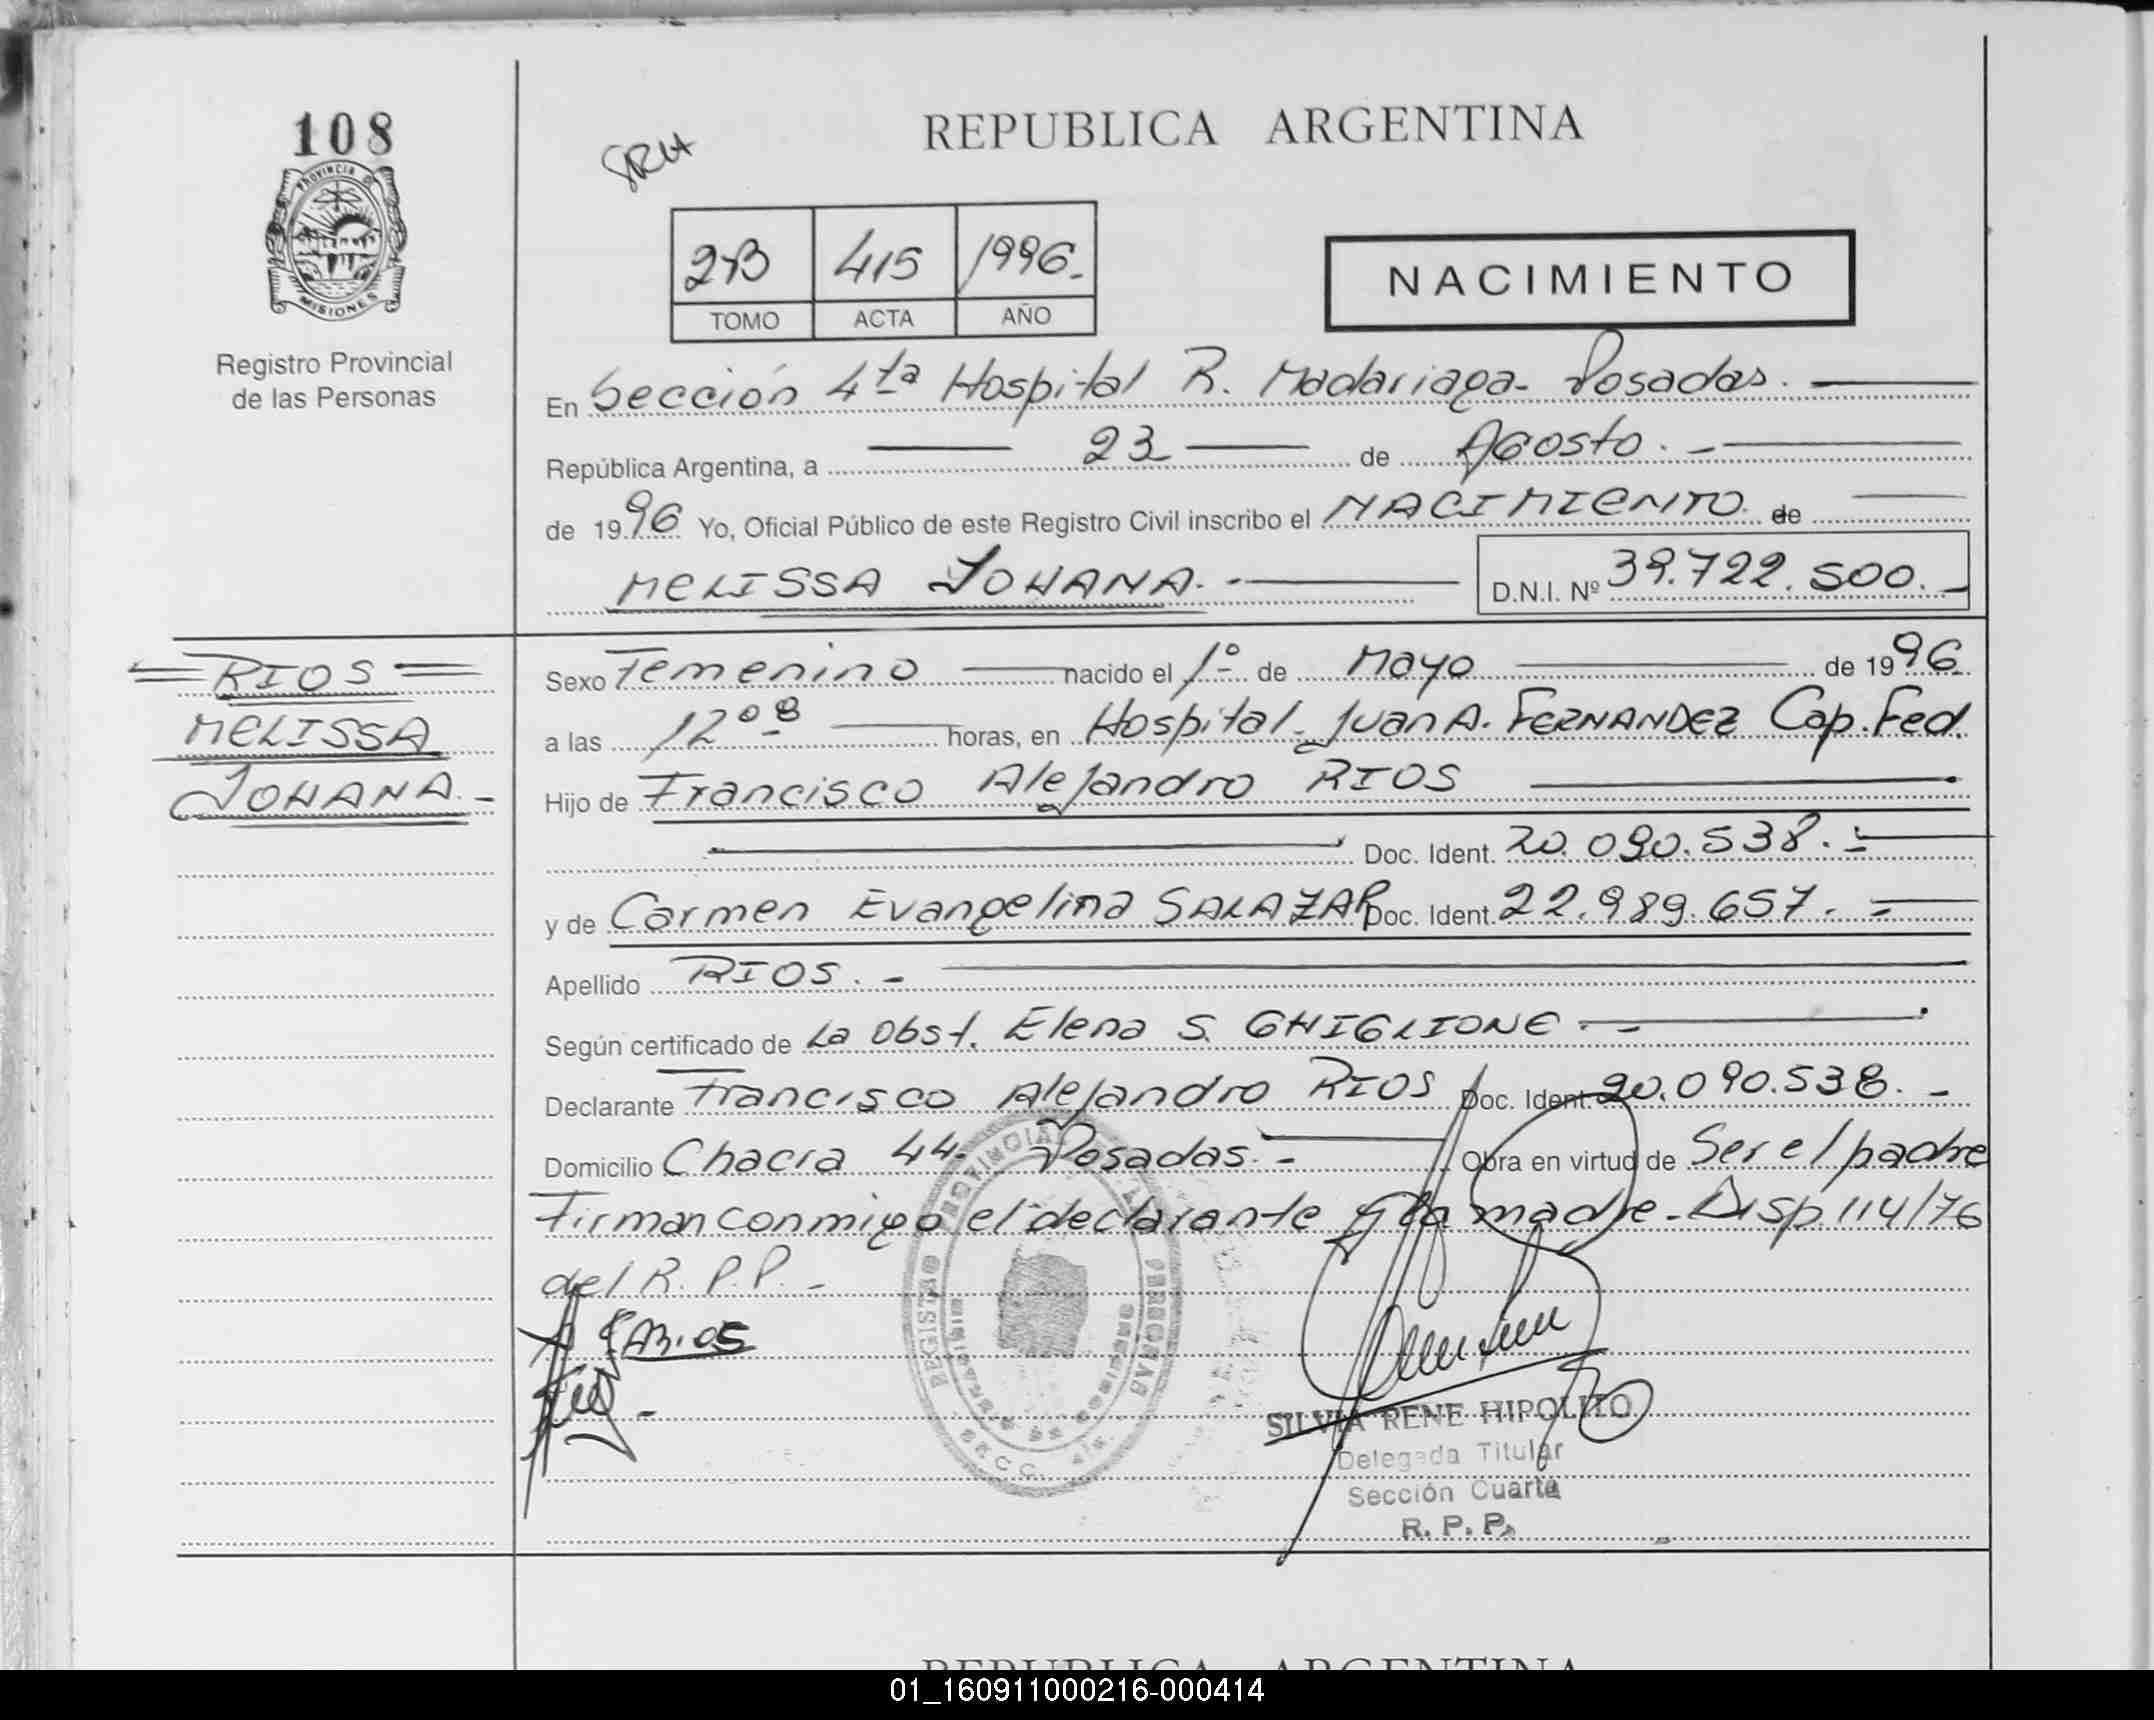 108
PROVINCIA DE
MISIONES
Registro Provincial
de las Personas
SRH
REPUBLICA ARGENTINA
2B 415 1996.-
TOMO ACTA AÑO
NACIMIENTO
En Sección 4ta Hospital R. Madariaga- Posadas.
República Argentina, a 23 de Agosto.-
de 1996 Yo, Oficial Público de este Registro Civil inscribo el NACIMIENTO de
MELISSA JOHANA.- D.N.I. Nº 39.722.500.-
RIOS
MELISSA
JOHANA.-
Sexo Femenino nacido el 1º de Mayo de 1996
a las 12º8 horas, en Hospital Juan A. FERNANDEZ Cap. Fed.
Hijo de Francisco Alejandro RIOS
Doc. Ident. 20.090.538.-
y de Carmen Evangelina SALAZAR Doc. Ident. 22.989.657.-
Apellido RIOS.-
Según certificado de La Obst. Elena S. GHIGLIONE.-
Declarante Francisco Alejandro RIOS Doc. Ident. 20.090.538.-
Domicilio Chacra 44- Posadas.- Obra en virtud de Ser el padre
Firman conmigo el declarante y la madre-Disp. 114/76
del R.P.P.-
REGISTRO PROVINCIAL DE LAS PERSONAS
SECC. 4ta.
SILVIA RENE HIPOLITO
Delegada Titular
Sección Cuarta
R. P. P.
REPUBLICA ARGENTINA
01_160911000216-000414